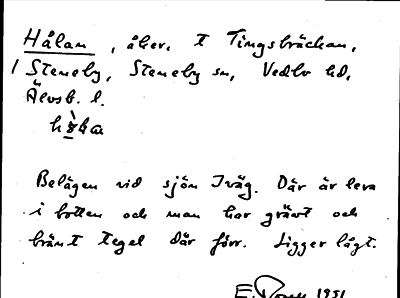 Hålan, åker, t Tingsbräckan,
1 Steneby, Steneby sn, Vedbo hd,
Älvsb. l.
Belägen vid sjön Iväg. Där är lera
i botten och man har grävt och
bränt tegel där förr. Ligger lågt.
E. 1951